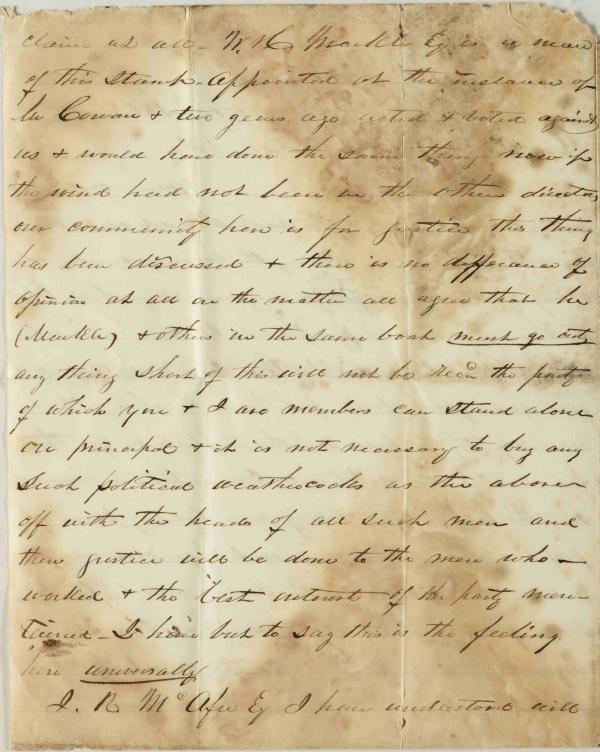 claim at all - W. H. Markle Eq is a man
of this stamp - Appointed at the instance of
Mr Cowan & two years ago acted & voted against
us & would have done the same thing now if
the wind had not been in the other direction
our community here is for justice this thing
has been discussed & there is no differance of
opinion at all on the matter all agree that he
(Markle) & others in the same boat must go out
any thing short of this will not be the party
of which you & I are members can stand alone
on principal & it is not necessary to buy any
such political weathercocks as the above
off with the heads of all such men and
then justice will be done to the men who -
worked & the best interest of the party main
tained - I have but to say this is the feeling
here universally
J. R McAfee Eq I have understood will